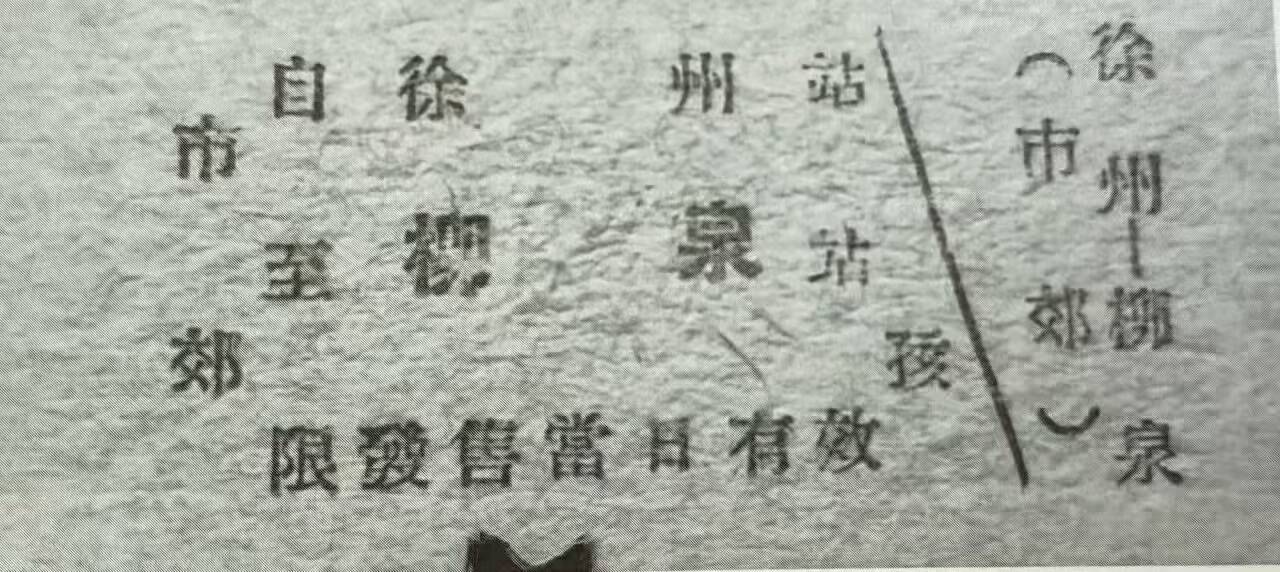 市郊
自徐州站
至柳泉站
孩
限發售當日有效
徐州—柳泉
（市郊）